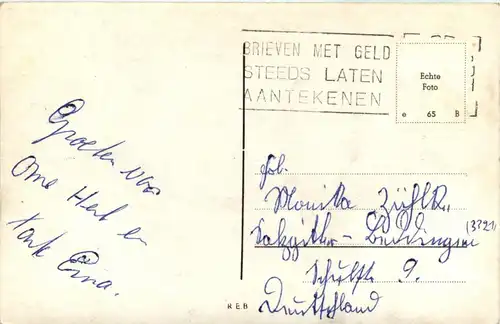 BRIEVEN MET GELD
STEEDS LATEN
AANTEKENEN
Echte
Foto
e 65 B
Groeten van
Ome Herb en
tante Eina.
Monika Zühlk.
Salzgitter-Beddingen (3321)
Schulstr. 9.
Deutschland
R.E.B